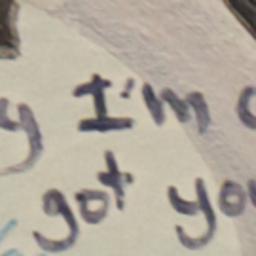 y I'm
got yo